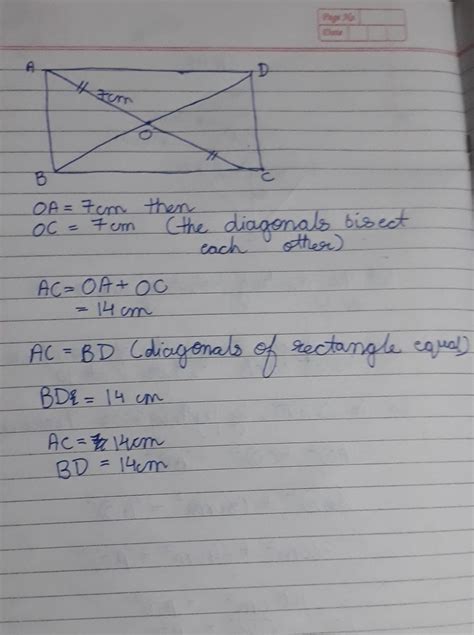 Page No.
Date
A
D
7cm
O
B
C
OA = 7cm then
OC = 7cm (the diagonals bisect
each other)
AC = OA + OC
= 14 cm
AC = BD (diagonals of rectangle equal)
BD = 14 cm
AC = 14cm
BD = 14cm